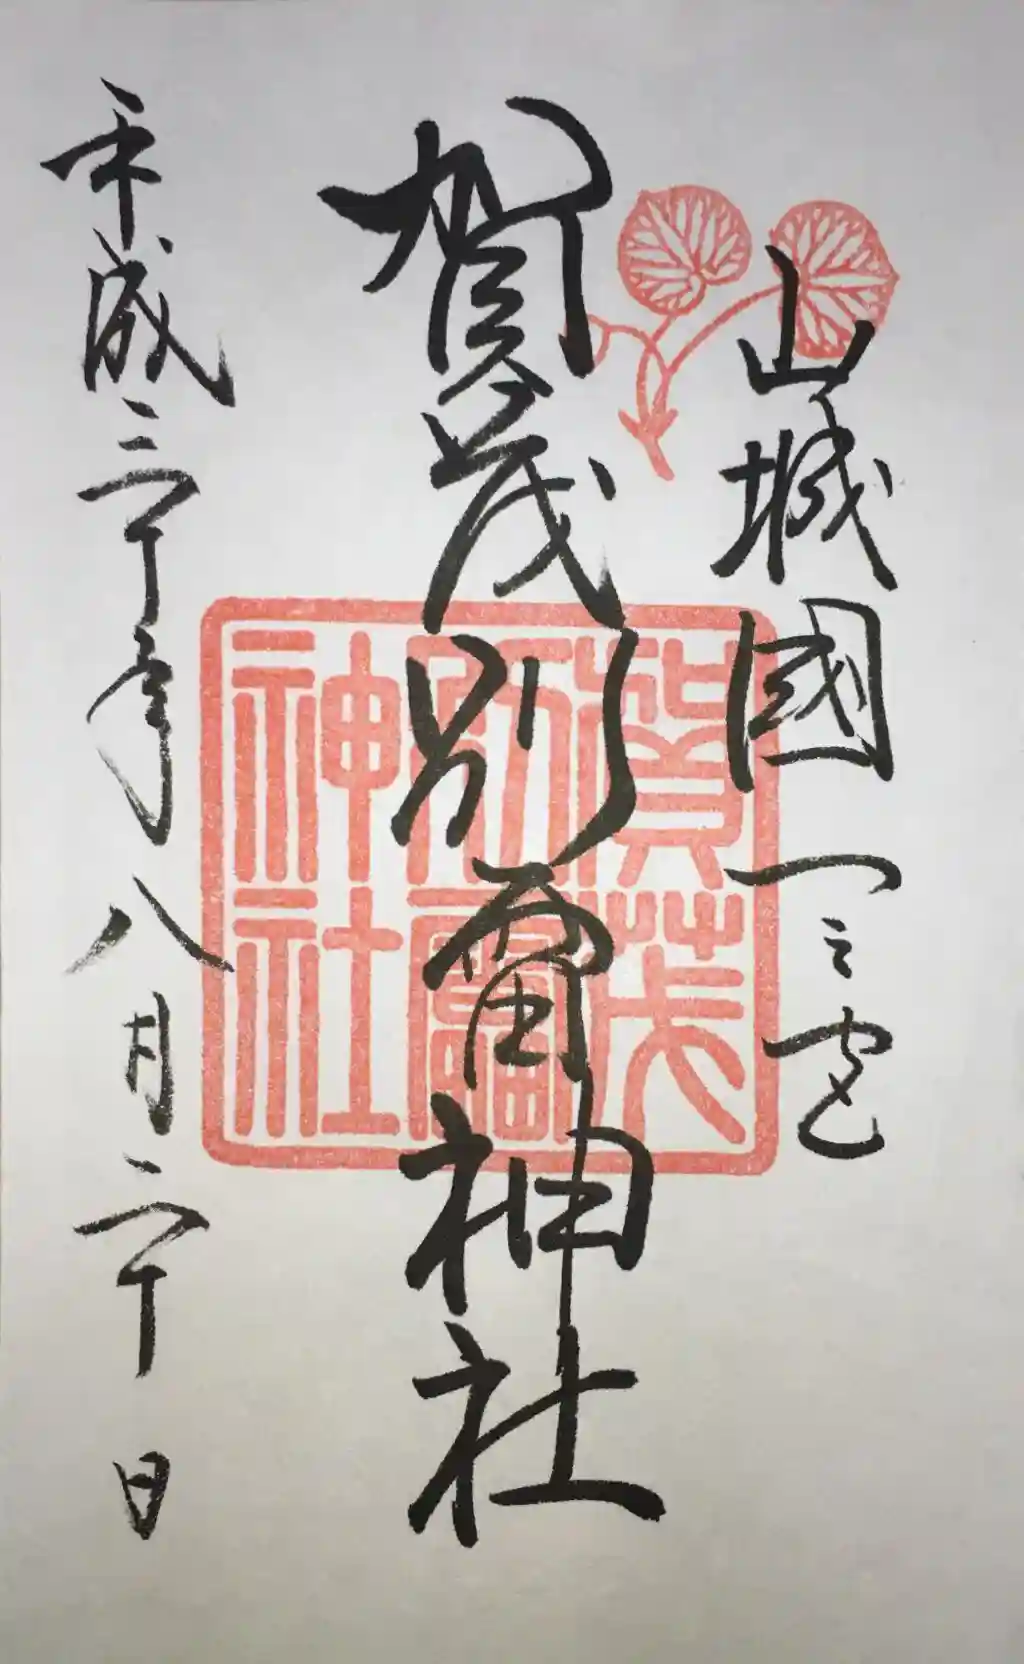 山城國一之宮
賀茂別雷神社
平成三十年八月二十日
賀茂
別雷
神社